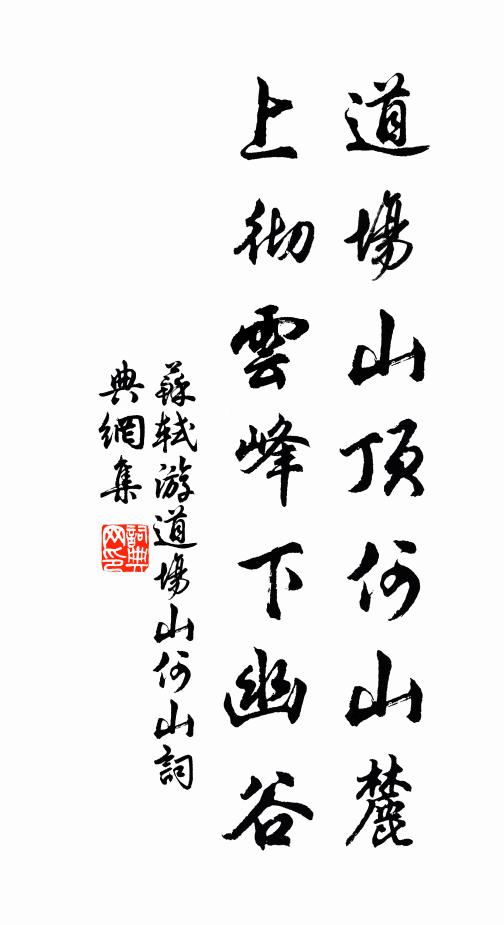 道場山頂何山麓
上彻雲峰下幽谷
蘇軾游道場山何山詞
典網集
詞典
网印